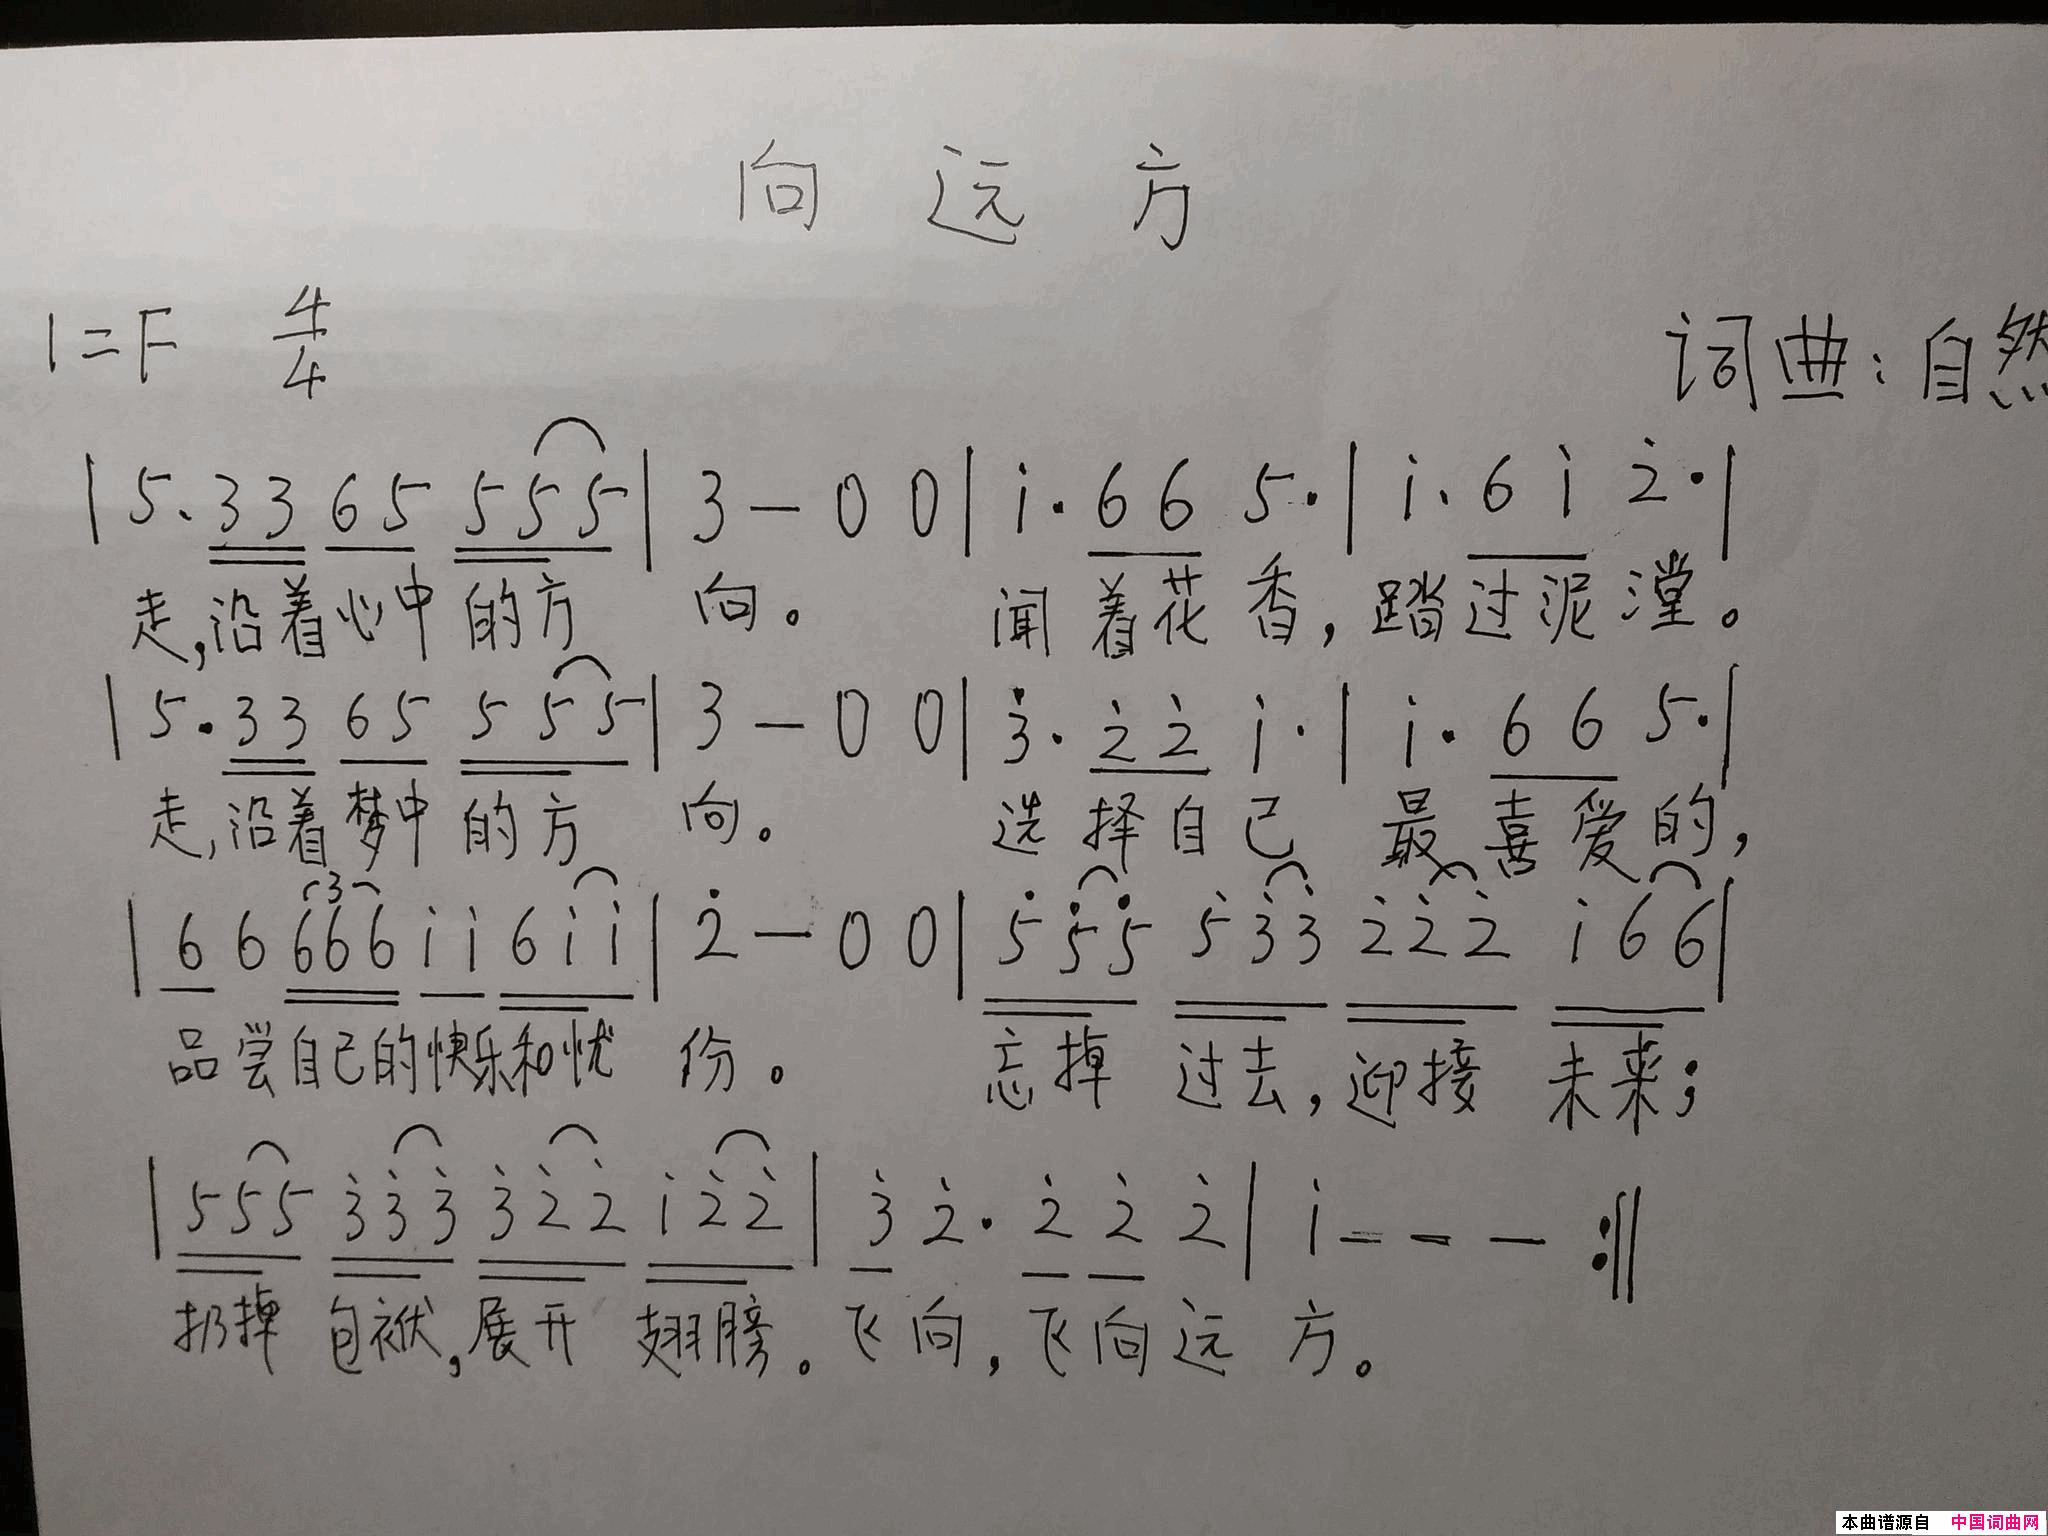 向远方
1=F 4/4
词典:自然
|5.33 65 555|3-00|i.66 5.|i.6i 2.|
走,沿着心中的方向。闻着花香,踏过泥潭。
|5.33 65 555|3-00|3.22 i.|i.66 5.|
走,沿着梦中的方向。选择自己最喜爱的,
3
|6 6 666 ii 6ii|2-00|555 533 222 i66|
品尝自己的快乐和忧伤。忘掉过去,迎接未来;
|555 333 322 i22|3 2. 2 2 2|i---:||
扔掉包袱,展开翅膀。飞向,飞向远方。
本曲谱源自 中国词曲网